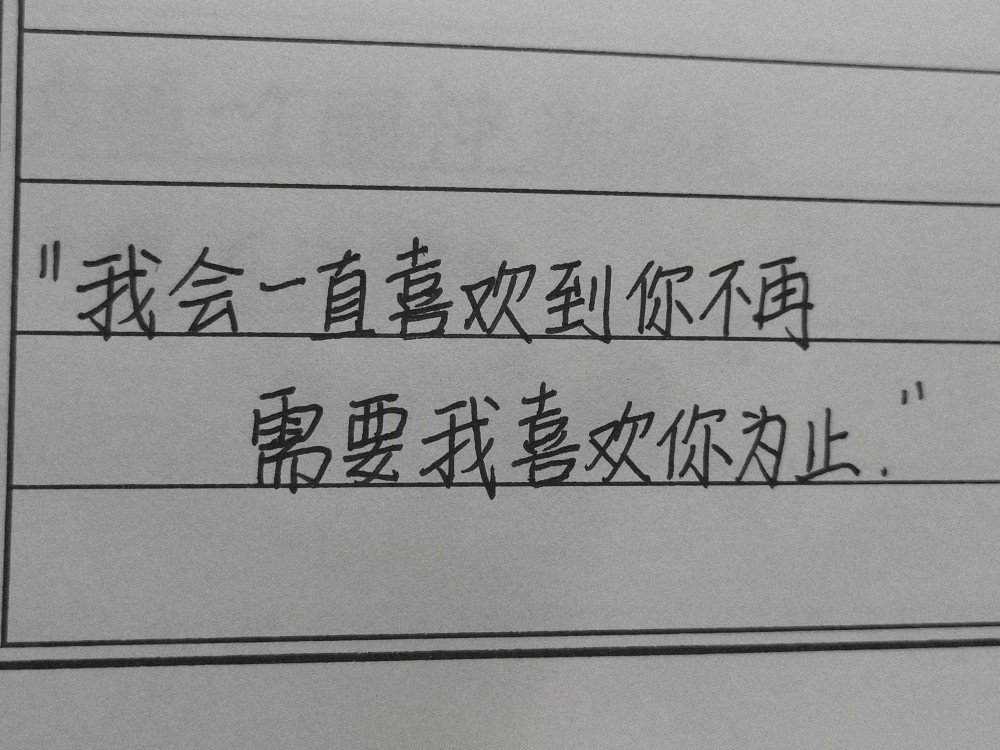 "我会一直喜欢到你不再
需要我喜欢你为止."